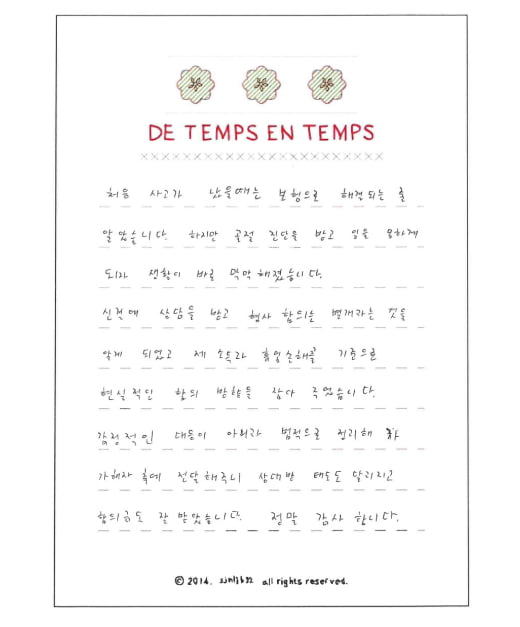 DE TEMPS EN TEMPS
처음 사고가 났을때는 보험으로 해결되는 줄
알았습니다. 하지만 골절 진단을 받고 일을 못하게
되자 생활이 바로 막막해졌습니다.
신적에 상담을 받고 형사 합의는 별개라는 것을
알게 되었고 제 소득과 휴업손해를 기준으로
현실적인 합의 방향을 잡아 주었습니다.
감정적인 대응이 아니라 법적으로 정리해
가해자 측에 전달해주니 상대방 태도도 달라지고
합의금도 잘 받았습니다. 정말 감사합니다.
© 2014. all rights reserved.